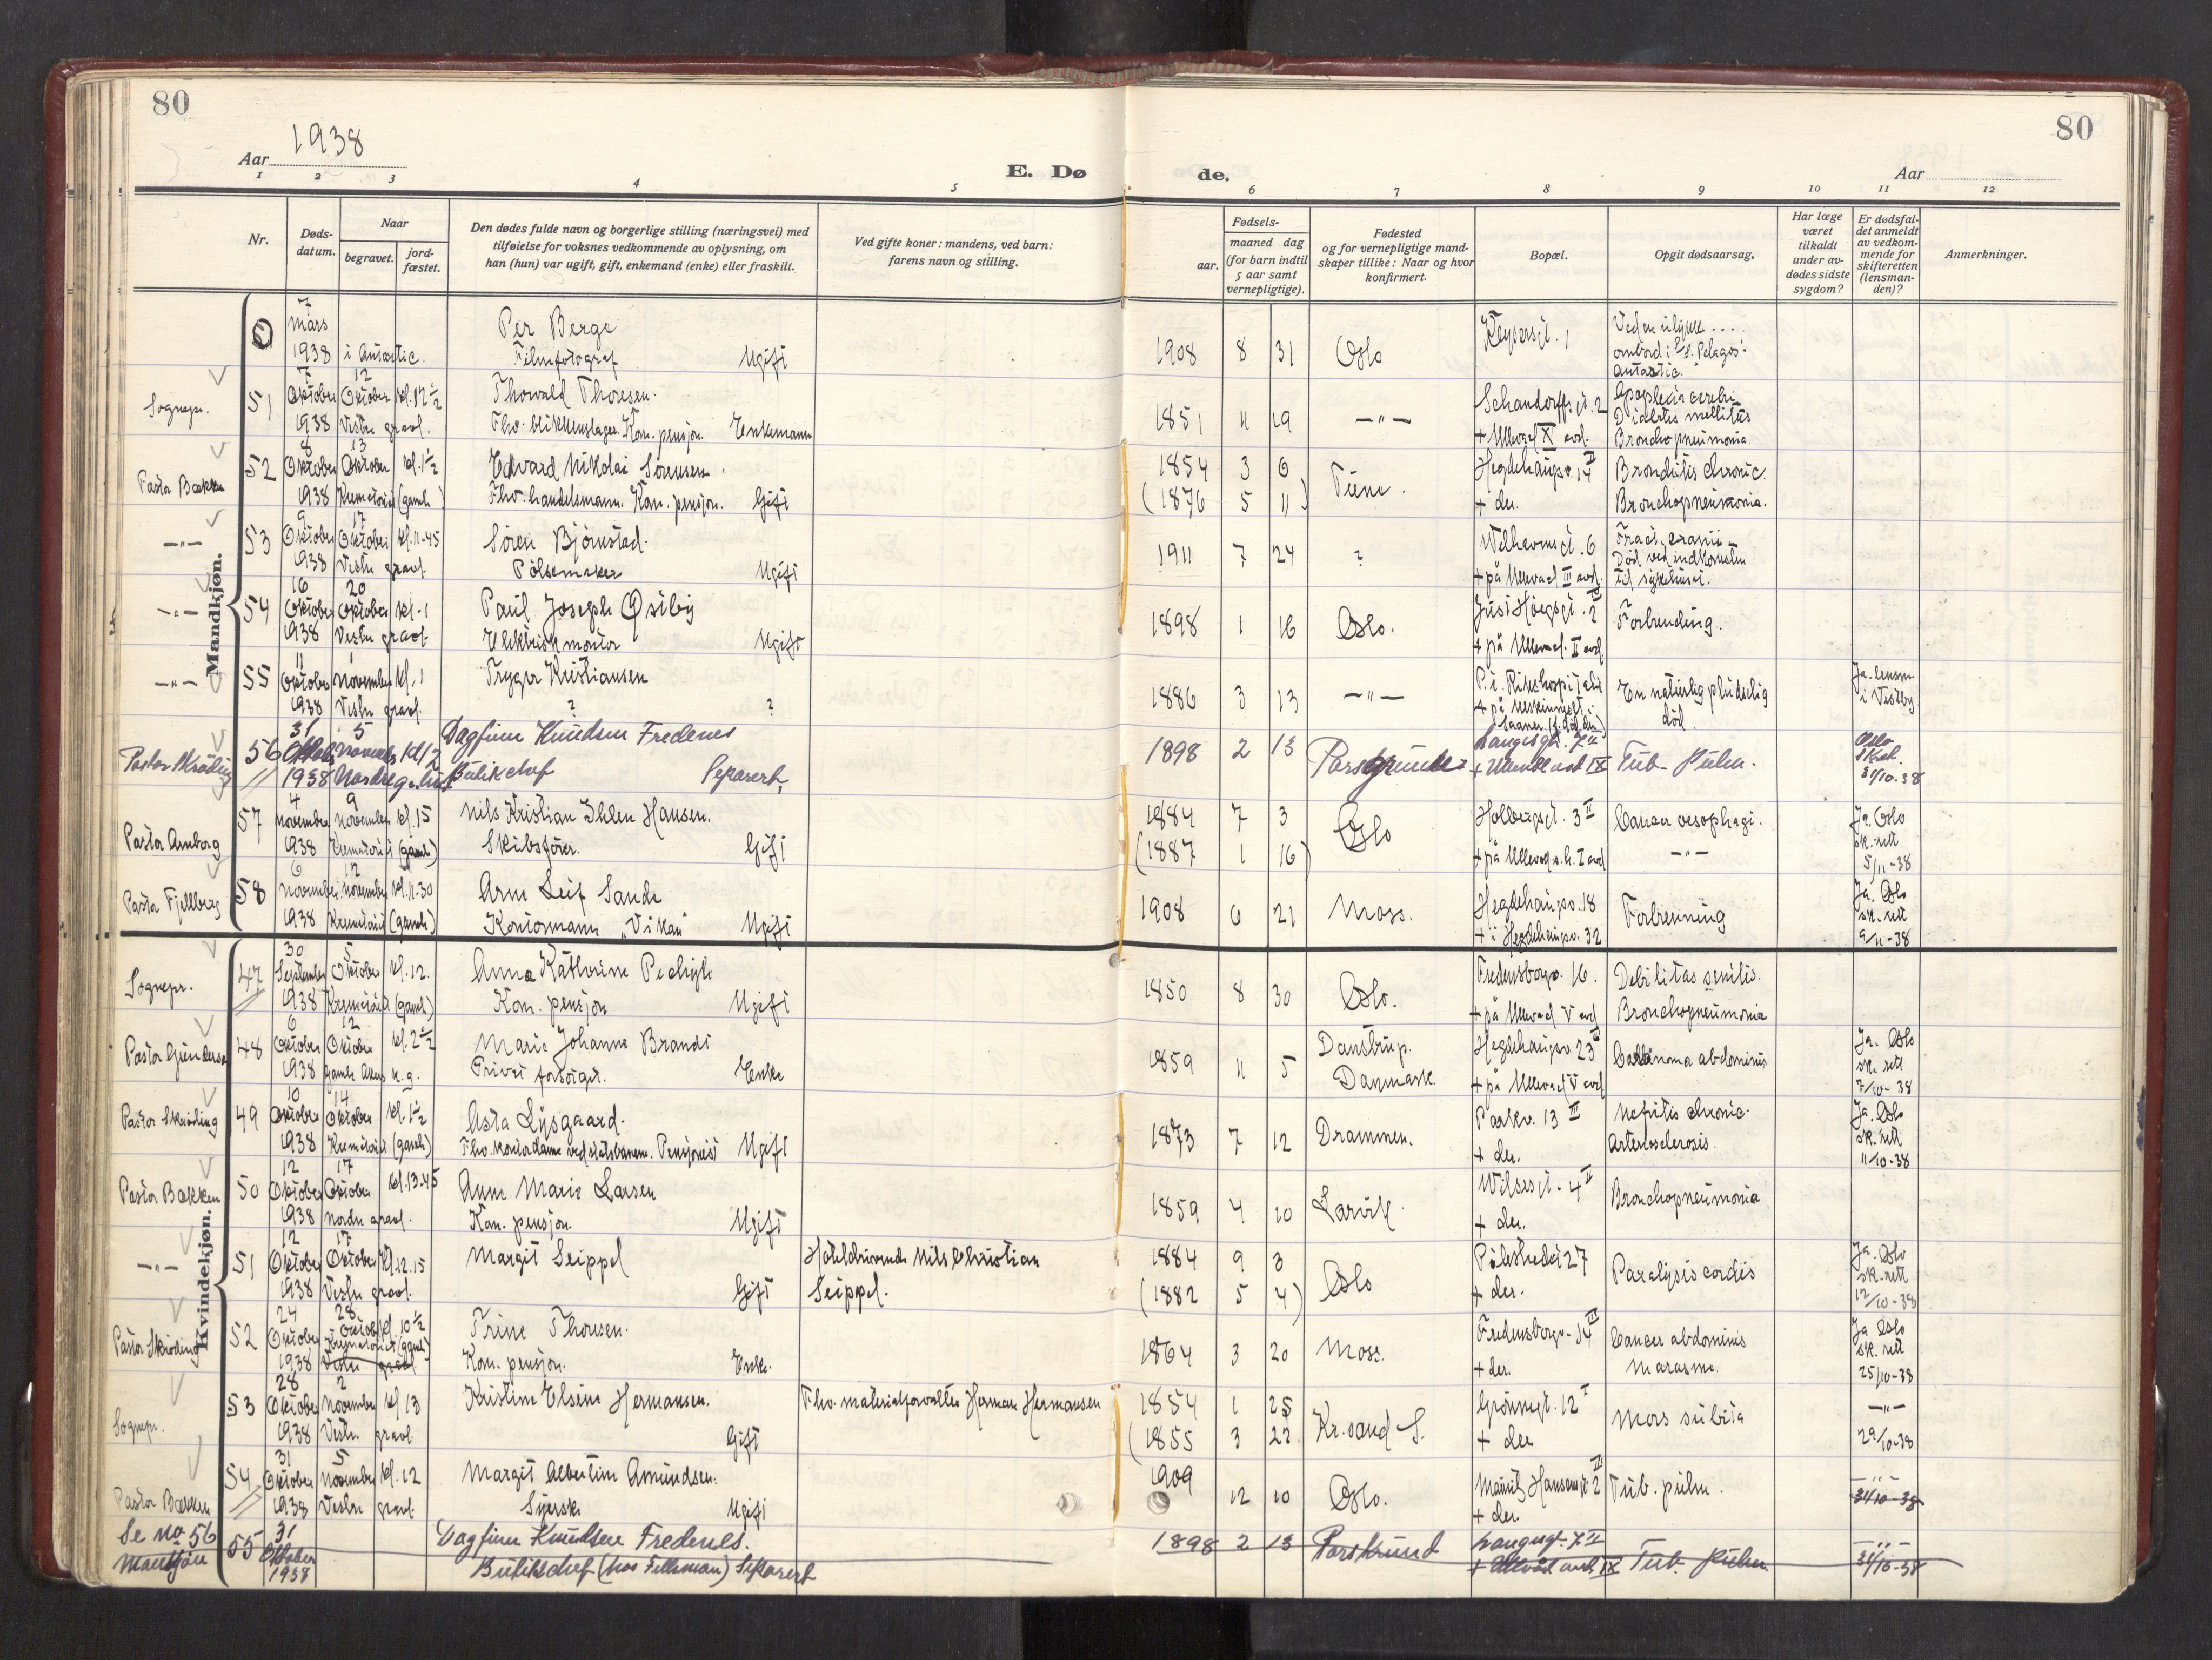 80
80
Aar 1938
E. Døde.
Aar
1 2 3 4 5 6 7 8 9 10 11 12
Nr.
Døds-
datum.
Naar
begravet.
jord-
fæstet.
Den dødes fulde navn og borgerlige stilling (næringsvei) med
tilføielse for voksnes vedkommende av oplysning, om
han (hun) var ugift, gift, enkemand (enke) eller fraskilt.
Ved gifte koner: mandens, ved barn:
farens navn og stilling.
Fødsels-
aar.
maaned dag
(for barn indtil
5 aar samt
vernepligtige).
Fødested
og for vernepligtige mand-
skaper tillike: Naar og hvor
konfirmert.
Bopæl.
Opgit dødsaarsag.
Har læge
været
tilkaldt
under av-
dødes sidste
sygdom?
Er dødsfal-
det anmeldt
av vedkom-
mende for
skifteretten
(lensman-
den)?
Anmerkninger.
Mandkjøn.
0 7 mars 1938 i Antarctic.
Per Berge
Filmfotograf Ugift
1908 8 31 Oslo
Keysersgt. 1
ombord i Pelagos
Sognepr. 51 7 Oktober 1938 12 Oktober kl. 12 1/2 Vestre gravl.
Thorvald Thoresen.
Fhv. blikkenslager. Kom. pensjon. Enkemann
1851 11 19 —"—
Schandorffsgt. 2
+ Ullevaal X avd.
Apoplexia cerebri
Diabetes mellitus
Bronchopneumonia.
Pastor Bækken 52 8 Oktober 1938 13 Oktober kl. 1 1/2 Krematoriet (gamle)
Edvard Nikolai Sørensen.
Fhv. handelsmann. Kom. pensjon. Gift
1854 3 6
(1876 5 11)
Hegdehaugsv. 14
+ der.
Bronchitis chronic.
Bronchopneumonia.
—"— 53 9 Oktober 1938 17 Oktober kl. 11.45 Vestre gravl.
Sören Björnstad.
Pölsemaker Ugift
1911 7 24 ?
Welhavensgt. 6
+ på Ullevaal III avd.
Fract. cranii
Död ved indkomsten
til sykehuset.
—"— 54 16 Oktober 1938 20 Oktober kl. 1 Vestre gravl.
Paul Joseph Østby
Elektrisk montör Ugift
1898 1 16 Oslo.
+ på Ullevaal II avd.
Forbrending.
—"— 55 11 Oktober 1938 1 November kl. 1 Vestre gravl.
Trygve Kristiansen
? ?
1886 3 13 —"—
En naturlig pludselig
död.
Ja. lensm.
i Vestby
Pastor Skröding 56 31 Oktober 1938 5 November kl 12
Dagfinn Knudsen Fredenes
Butikchef Separert,
1898 2 13
Langesgt. 7 II
+ Ullevål avd IX
Tub. Pulm.
Oslo
Skrt.
31/10-38
Pastor Amborg 57 4 November 1938 9 November kl. 15 Krematoriet (gamle)
Nils Kristian Ihlen Hansen.
Skibsförer. Gift
1884 7 3
(1887 1 16)
Oslo
Holbergsgt. 3 II
+ på Ullevaal s.h. I avd
Cancer oesophagi.
—"—
Ja. Oslo
sk.rett
5/11-38
Pastor Fjellberg 58 6 November 1938 12 November kl. 11.30 Krematoriet (gamle)
Arne Leif Sande
Kontormann "Vikan" Ugift
1908 6 21 Moss.
Hegdehaugsv. 18
+ i Hegdehaugsv. 32
Forbrenning
Ja. Oslo
sk.rett
9/11-38
Kvindekjøn.
Sognepr. 47 30 September 1938 5 Oktober kl. 12. Krematoriet (gamle)
Anna Kathrine
Kom. pensjon Ugift
1850 8 30 Oslo.
Fredensborgv. 16.
+ på Ullevaal V avd
Debilitas senilis.
Bronchopneumonia
Pastor Gundersen 48 6 Oktober 1938 12 Oktober kl. 2 1/2 Gamle Akers k.g.
Marie Johanne Brandt
Privat forsörget. Enke
1859 11 5
Danstrup.
Danmark.
Hegdehaugsv 23
+ på Ullevaal V avd
Carcinoma abdominis
Ja. Oslo
sk. rett
7/10-38
Pastor Skröding 49 10 Oktober 1938 14 Oktober kl. 1 1/2 Krematoriet (gamle)
Asta Lysgaard.
Fhv. kontordame ved statsbanene. Pensjonist Ugift
1873 7 12 Drammen.
Parkv. 13 III
+ der.
Nefritis chronic.
Arteriosclerosis.
Ja. Oslo
sk.rett
11/10-38
Pastor Bækken 50 12 Oktober 1938 17 Oktober kl. 13.45 Nordre gravl.
Anne Marie Larsen
Kom. pensjon. Ugift
1859 4 10 Larvik.
Wilsesgt. 4 II
+ der.
Bronchopneumonia
—"— 51 12 Oktober 1938 17 Oktober kl. 12.15 Vestre gravl.
Margit Seippel
Gift
Hotelbestyrer Nils Christian
Seippel.
1884 9 3
(1882 5 4)
Oslo
Pilestredet 27
+ der.
Paralysis cordis
Ja. Oslo
sk.rett
12/10-38
Pastor Skröding 52 24 Oktober 1938 28 Oktober kl. 10 1/2 Krematoriet (gamle) Vestre gravl
Trine Thoresen.
Kom. pensjon. Enke.
1864 3 20 Moss.
Fredensborgv. 14 III
+ der.
Cancer abdominis
Marasme.
Ja Oslo
sk. rett
25/10-38
Sognepr. 53 28 Oktober 1938 2 November kl 13 Vestre gravl.
Kristine Elsine Hermansen.
Gift
Fhv. materialforvalter Herman Hermansen
1854 1 25
(1855 3 22
Kr.sand S.
Grönnegt. 12 I
+ der
Mors subita
—"—
29/10-38
Pastor Bækken 54 31 Oktober 1938 5 November kl. 12 Vestre gravl.
Margit Albertine Amundsen.
Syerske Ugift
1909 12 10 Oslo.
Mauritz Hansensgt 2 III
+ der.
Tub. pulm.
—"—
31/10-38
Se No 56
Mannkjön
55 31 Oktober 1938
Dagfinn Knudsen Fredenes.
Butikchef (hos Fellman) Separert
1898 2 13 Porsgrund
Langesgt. 7 II
+ Ullevål avd IX
Tub. Pulm.
—"—
31/10-38